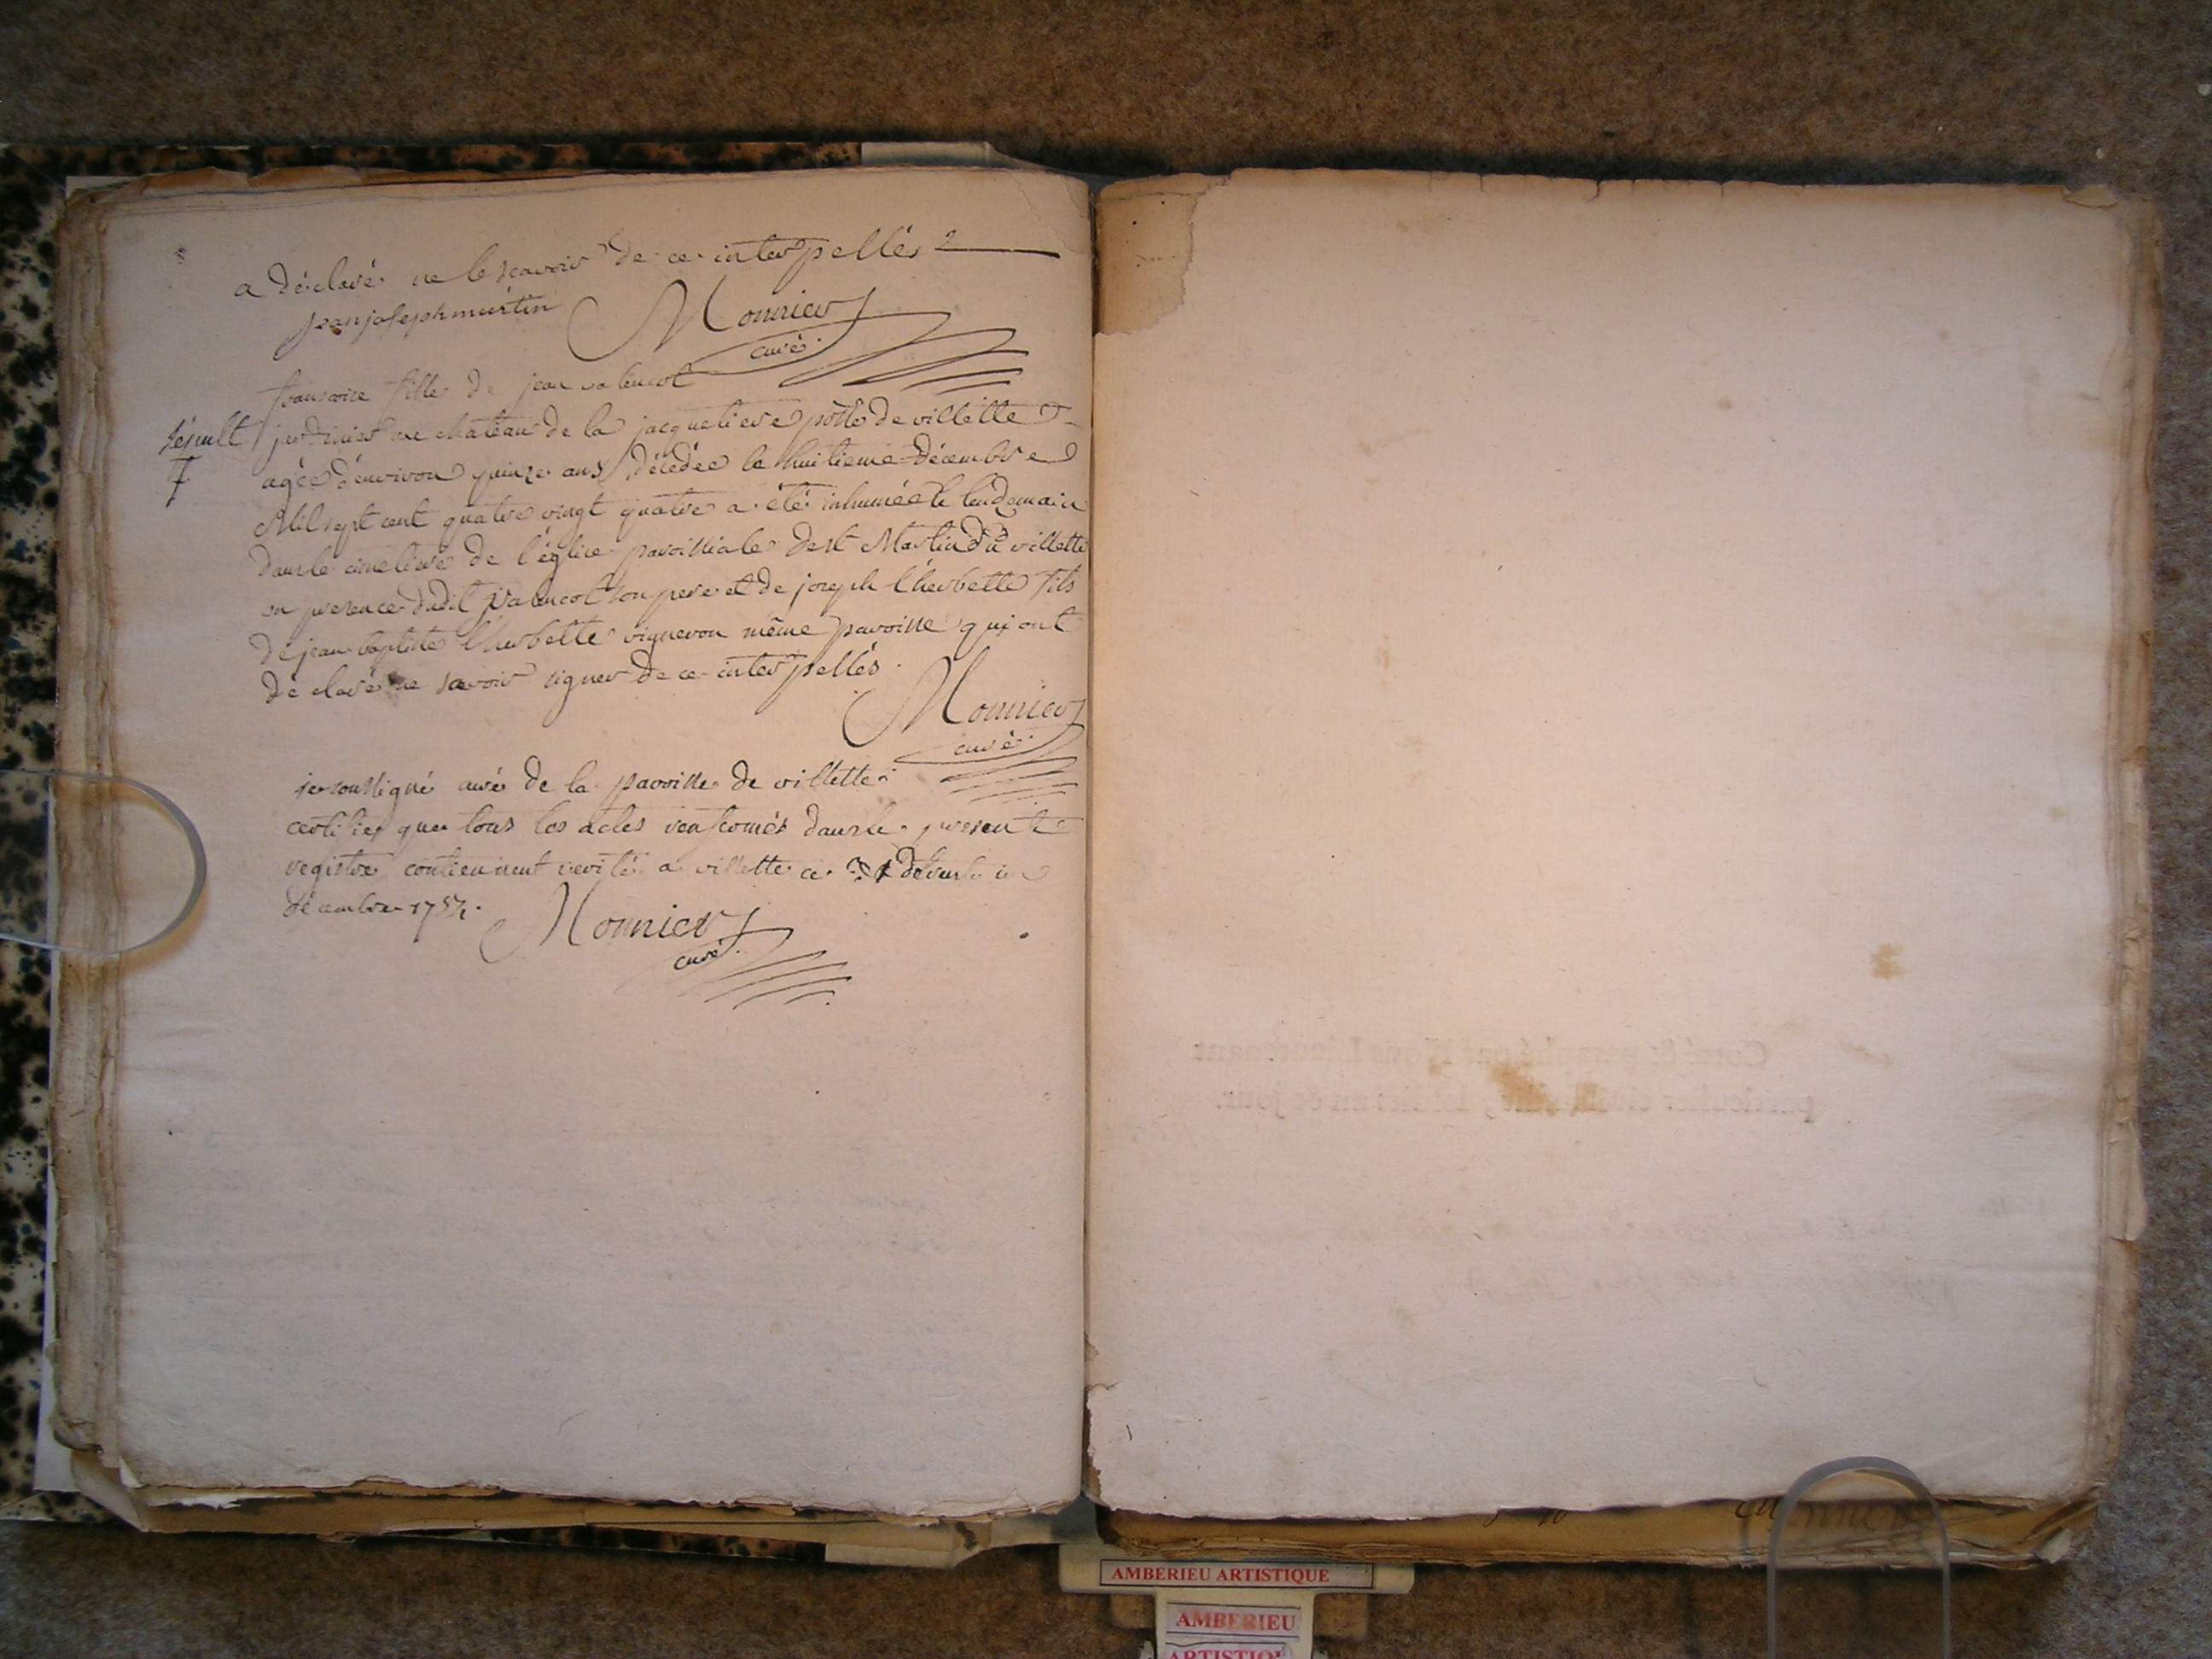 a déclaré ne le scavoir de ce interpellés
jean joseph martin Monnier
curé
francoise fille de jean valencot
sépult jardinier au chateau de la jacquetiere psse de villette
agée d'environ quinze ans décédée le huitieme décembre
Mil sept cent quatre vingt quatre a été inhumée le lendemain
dans le cimetiere de l'église paroissiale de st Martin du villette
en presence dudit valencot son pere et de joseph l'herbette fils
de jean baptiste l'herbette vigneron même paroisse qui ont
déclaré ne savoir signer de ce interpellés.
Monnier
curé
je soussigné curé de la paroisse de villette
certifie que tous les actes renfermés dans le present
registre contiennent verité a villette ce 31
décembre 1784.
Monnier
curé
Cotté & paraphé par Nous Lieutenant
particulier civil
AMBERIEU ARTISTIQUE
AMBERIEU
ARTISTIQUE